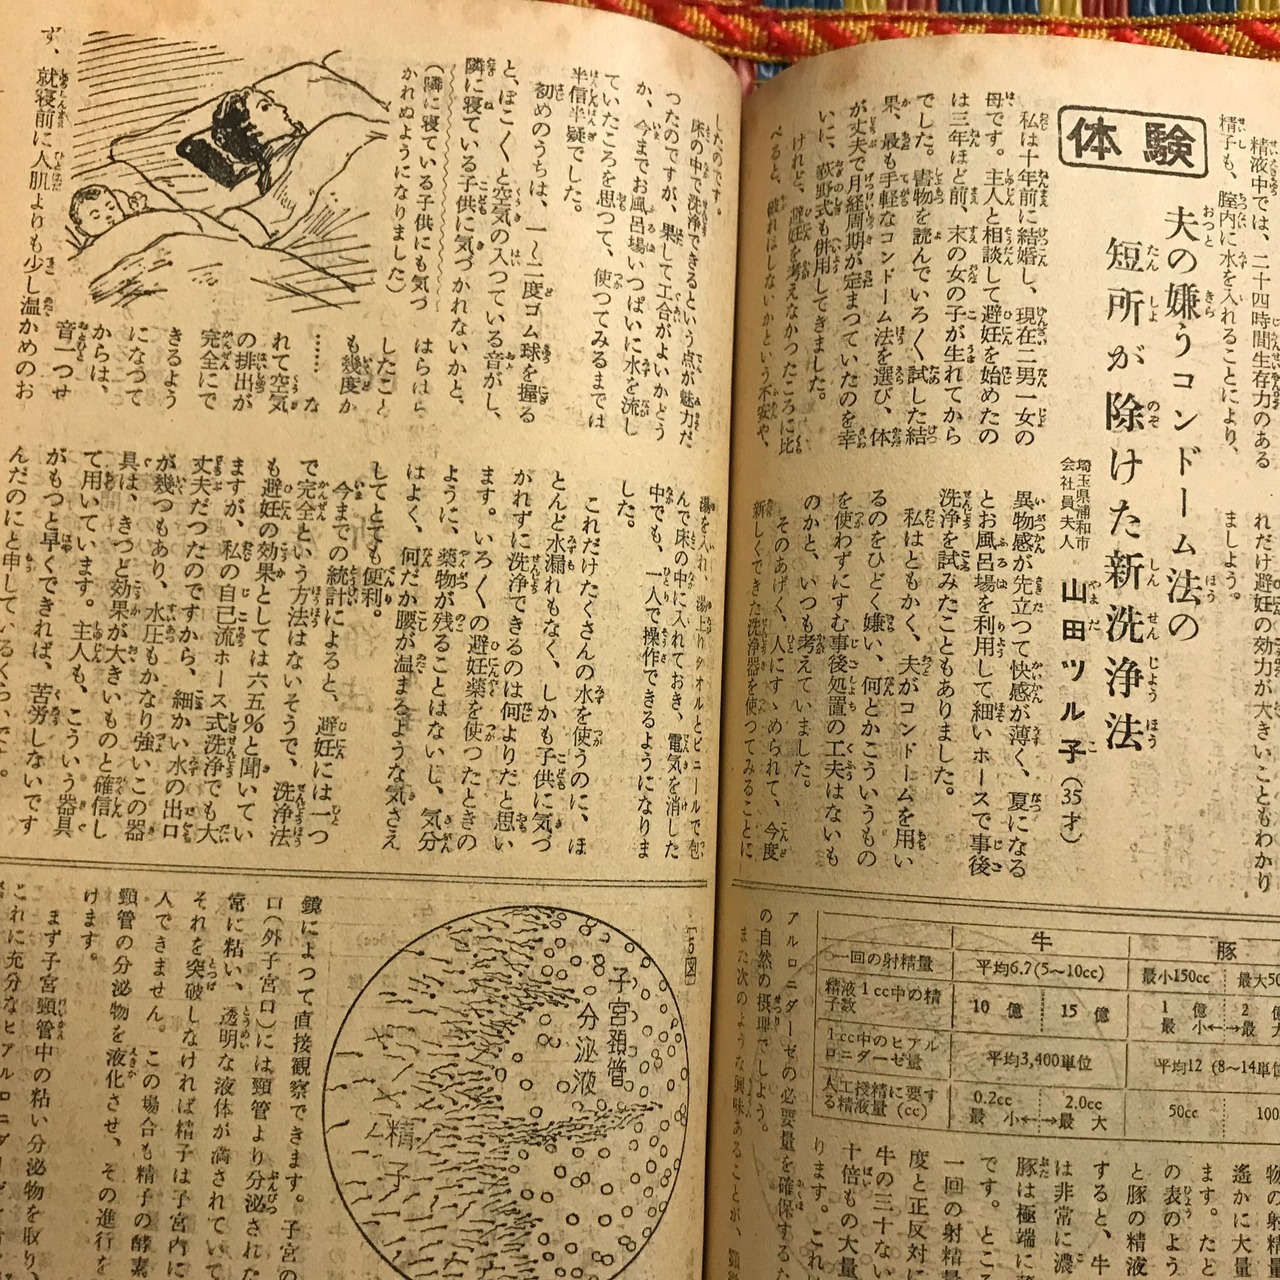 精液中では、二十四時間生存力のある
精子も、膣内に水を入れることにより、
れだけ避妊の効力が大きいこともわかり
ましよう。
体験
夫の嫌うコンドーム法の
短所が除けた新洗浄法
埼玉県浦和市
会社員夫人
山田ツル子(35才)
私は十年前に結婚し、現在二男一女の
母です。主人と相談して避妊を始めたの
は三年ほど前、末の女の子が生れてから
でした。書物を読んでいろ〱試した結
果、最も手軽なコンドーム法を選び、体
が丈夫で月経周期が定まつていたのを幸
いに、荻野式も併用してきました。
けれど、避妊を考えなかつたころに比
べると、破れはしないかという不安や、
異物感が先立つて快感が薄く、夏になる
とお風呂場を利用して細いホースで事後
洗浄を試みたこともありました。
私はともかく、夫がコンドームを用い
るのをひどく嫌い、何とかこういうもの
を使わずにすむ事後処置の工夫はないも
のかと、いつも考えていました。
そのあげく、人にすゝめられて、今度
新しくできた洗浄器を使つてみることに
したのです。
床の中で洗浄できるという点が魅力だ
つたのですが、果して工合がよいかどう
か、今までお風呂場いつぱいに水を流し
ていたころを思つて、使つてみるまでは
半信半疑でした。
初めのうちは、一〜二度ゴム球を握る
と、ぼこ〱と空気の入つている音がし、
隣に寝ている子供に気づかれないかと、
はらはら
したこと
も幾度か
……な
れて空気
の排出が
完全にで
きるよう
になつて
からは、
音一つせ
ず、就寝前に人肌よりも少し温かめのお
(隣に寝ている子供にも気づ
かれぬようになりました)
湯を入れ、湯上りタオルとビニールで包
んで床の中に入れておき、電気を消した
中でも、一人で操作できるようになりま
した。
これだけたくさんの水を使うのに、ほ
とんど水漏れもなく、しかも子供に気づ
かれずに洗浄できるのは何よりだと思い
ます。いろ〱の避妊薬を使つたときの
ように、薬物が残ることはないし、気分
はよく、何だか腰が温まるような気さえ
してとても便利。
今までの統計によると、避妊には一つ
で完全という方法はないそうで、洗浄法
も避妊の効果としては六五%と聞いてい
ますが、私の自己流ホース式洗浄でも大
丈夫だつたのですから、細かい水の出口
が幾つもあり、水圧もかなり強いこの器
具は、きつと効果が大きいものと確信し
て用いています。主人も、こういう器具
がもつと早くできれば、苦労しないです
んだのにと申しているくらいです。
牛
豚
一回の射精量
平均6.7(5〜10cc)
最小150cc
精液1cc中の精子数
10億
15億
1億
最小←→最
1cc中のヒアルロニダーゼ量
平均3,400単位
平均12
人工授精に要する精液量(cc)
0.2cc
2.0cc
最小←→最大
50cc
アルロニダーゼの必要量を確保するた
の自然の摂理でしよう。
また次のような興味あることが、
[5図]
子宮頚管
分泌液
精子
鏡によつて直接観察できます。子宮の
口(外子宮口)には頸管より分泌された
常に粘い、透明な液体が満されていて
それを突破しなければ精子は子宮内に
人できません。この場合も精子の酵素
頸管の分泌物を液化させ、その進行を
けます。
まず子宮頸管中の粘い分泌物を取り、
これに充分なヒアルロニダーゼ